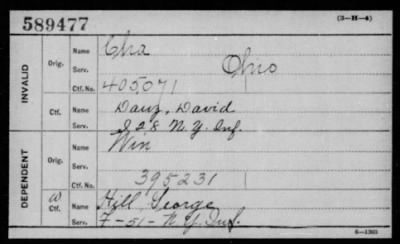 589477
(3—H—4)
INVALID
Orig.
Name Cha
Serv. Ohio
Ctf. No. 405,071
Ctf.
Name Dauz, David
Serv. I 28 N.Y. Inf.
DEPENDENT
Orig.
Name Win
Serv.
Ctf. No. 395231
W
Ctf.
Name Hill George
Serv. F-51-N.Y. Inf.
6—1303